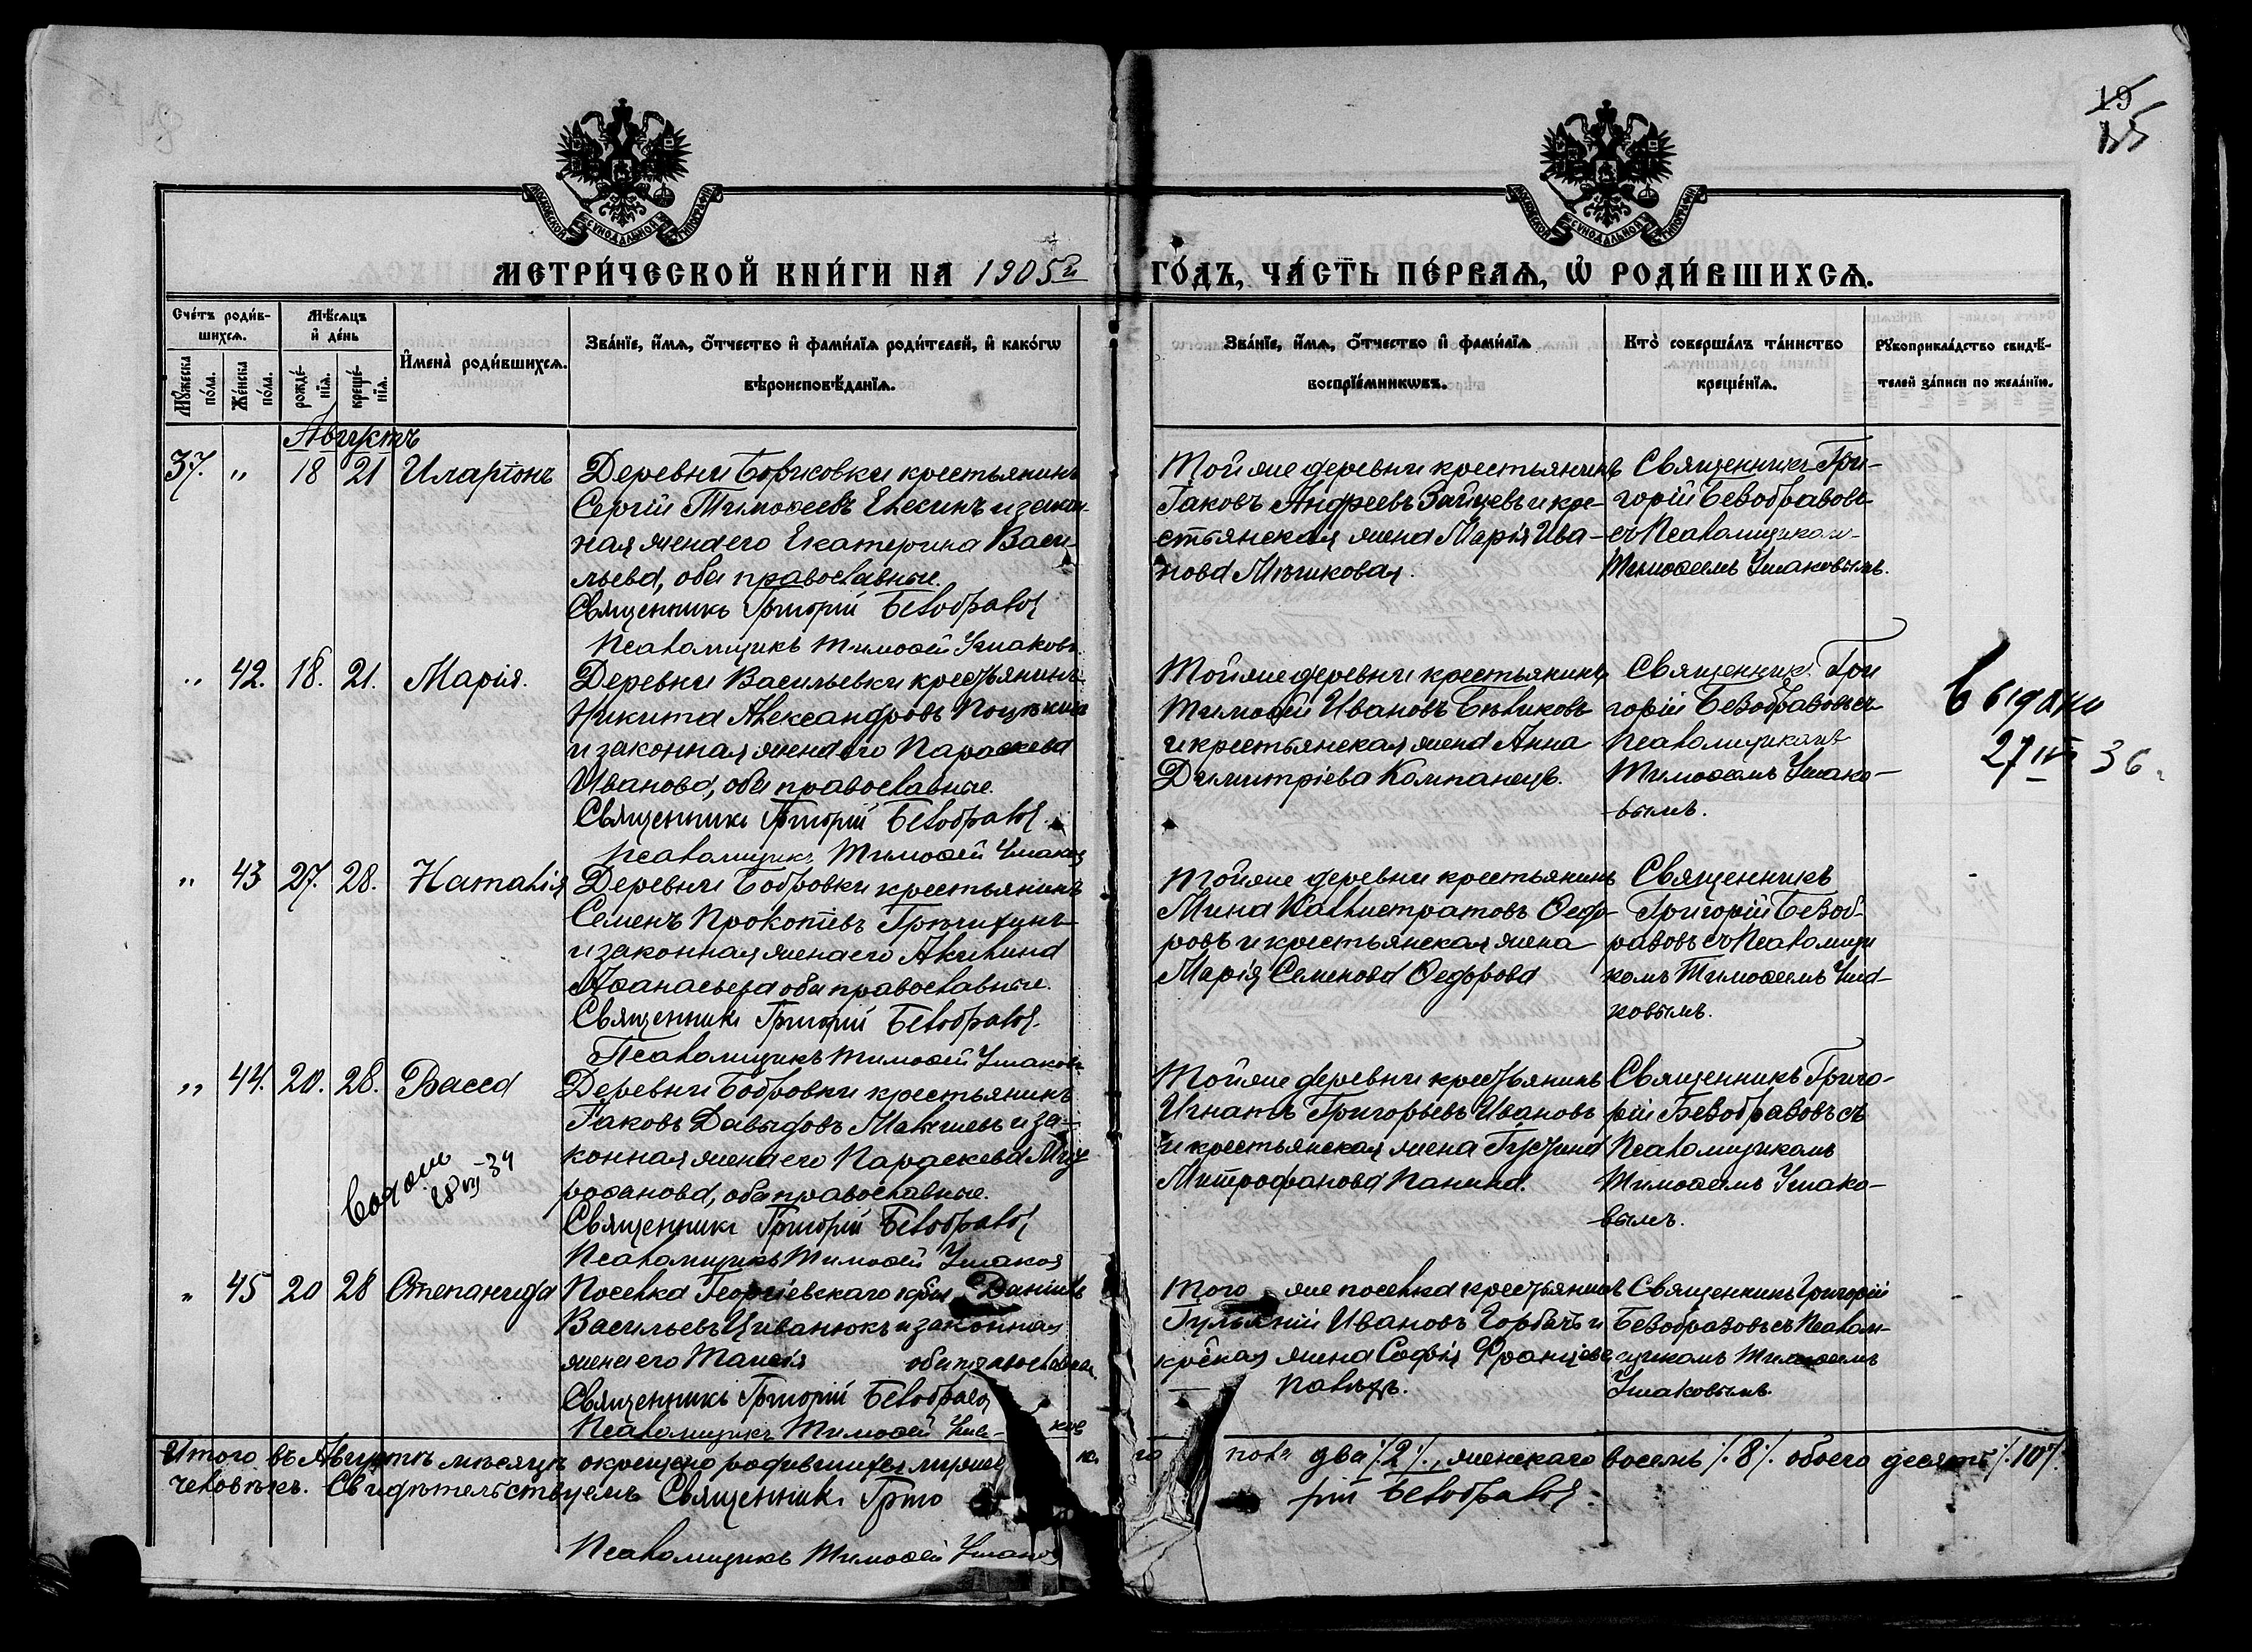 19
МОСКОВСКОЙ СѴНОДАЛЬНОЙ ТИПОГРАФІИ
МОСКОВСКОЙ СѴНОДАЛЬНОЙ ТИПОГРАФІИ
МЕТРИ́ЧЕСКОЙ КНИ́ГИ НА 1905й ГО́ДЪ, ЧА́СТЬ ПЕ́РВАѦ, Ѡ РОДИ́ВШИХСѦ.
Сче́тъ роди́в-
шихсѧ.
Мꙋжеска по́ла.
Же́нска по́ла.
Мѣ́сѧцъ
и҆ де́нь
рожде́-
нїѧ.
креще́-
нїѧ.
И҆мена̀ роди́вшихсѧ.
Зва́нїе, и҆́мѧ, ѻ҆́тчество и҆ фами́лїѧ роди́телей, и҆ како́гѡ
вѣроисповѣ́данїѧ.
Зва́нїе, и҆́мѧ, ѻ҆́тчество и҆ фами́лїѧ
воспрїе́мникѡвъ.
Кто̀ соверша́лъ та́инство
креще́нїѧ.
Рꙋкоприкла́дство свидѣ́-
телей за́писи по жела́нїю.
Августъ
37. " 18 21 Иларіонъ
Деревни Борисовки крестьянинъ
Сергій Тимоѳеевъ Елесинъ и закон-
ная жена его Екатерина Васи-
льева, оба православные.
Священникъ Григорій Безобразов
Псаломщикъ Тимоѳей Ушаковъ
Той же деревни крестьянинъ
Іаковъ Андреевъ Зайцевъ и кре-
стьянская жена Марія Ива-
нова
Священникъ Гри-
горій Безобразовъ
съ Псаломщикомъ
Тимоѳеемъ Ушаковымъ.
" 42. 18. 21. Марія.
Деревни Васильевки крестьянинъ
Никита Александровъ
и законная жена его Параскева
Иванова, оба православные.
Священникъ Григорій Безобразов
Псаломщикъ Тимоѳей Ушаков
Той же деревни крестьянинъ
Тимоѳей Ивановъ Бѣликовъ
и крестьянская жена Анна
Димитріева Компанецъ.
Священник Гри
горій Безобразовъ съ
Псаломщикомъ
Тимоѳеемъ Ушако-
вымъ.
Выдано
27 IV 36.
" 43 27. 28. Наталія
Деревни Бобровки крестьянинъ
Семенъ Прокопіевъ
и законная жена его Акилина
Аѳанасьева оба православные.
Священникъ Григорій Безобразов.
Псаломщикъ Тимоѳей Ушаковъ
Той же деревни крестьянинъ
Мина Каллистратовъ Ѳедо-
ровъ и крестьянская жена
Марія Семенова Ѳедорова
Священникъ
Григорій Безоб-
разовъ съ Псаломщи
комъ Тимоѳеемъ Уша-
ковымъ.
" 44. 20. 28. Васса
Деревни Бобровки крестьянинъ
Іаковъ Давыдовъ и за-
конная жена его Параскева Мит
рофанова, оба православные.
Священникъ Григорій Безобразов
Псаломщикъ Тимоѳей Ушаков
Той же деревни крестьянинъ
Игнатъ Григорьевъ Ивановъ
и крестьянская жена Іустина
Митрофанова Панина.
Священникъ Григо-
рій Безобразовъ съ
Псаломщикомъ
Тимоѳеемъ Ушако-
вымъ.
" 45 20 28 Степанида
Поселка Георгіевскаго Даніилъ
Васильевъ Цыванюкъ и законная
жена его Таисія оба православные
Священникъ Григорій Безобразов
Псаломщикъ Тимоѳей Уша- ков
Того же поселка крестьянинъ
Іуліаній Ивановъ Горбачъ и
жена Софія Францова
Священникъ Григорій
Безобразовъ съ Псалом-
щикомъ Тимоѳеемъ
Ушаковымъ.
Итого въ Августѣ мѣсяцѣ окрещено родившихся мужес го пола два ٪2٪, женскаго восемь ٪8٪ обоего десять ٪10٪
человѣкъ. Свидѣтельствуемъ Священникъ Григо рій Безобразов.
Псаломщикъ Тимоѳей Ушаков